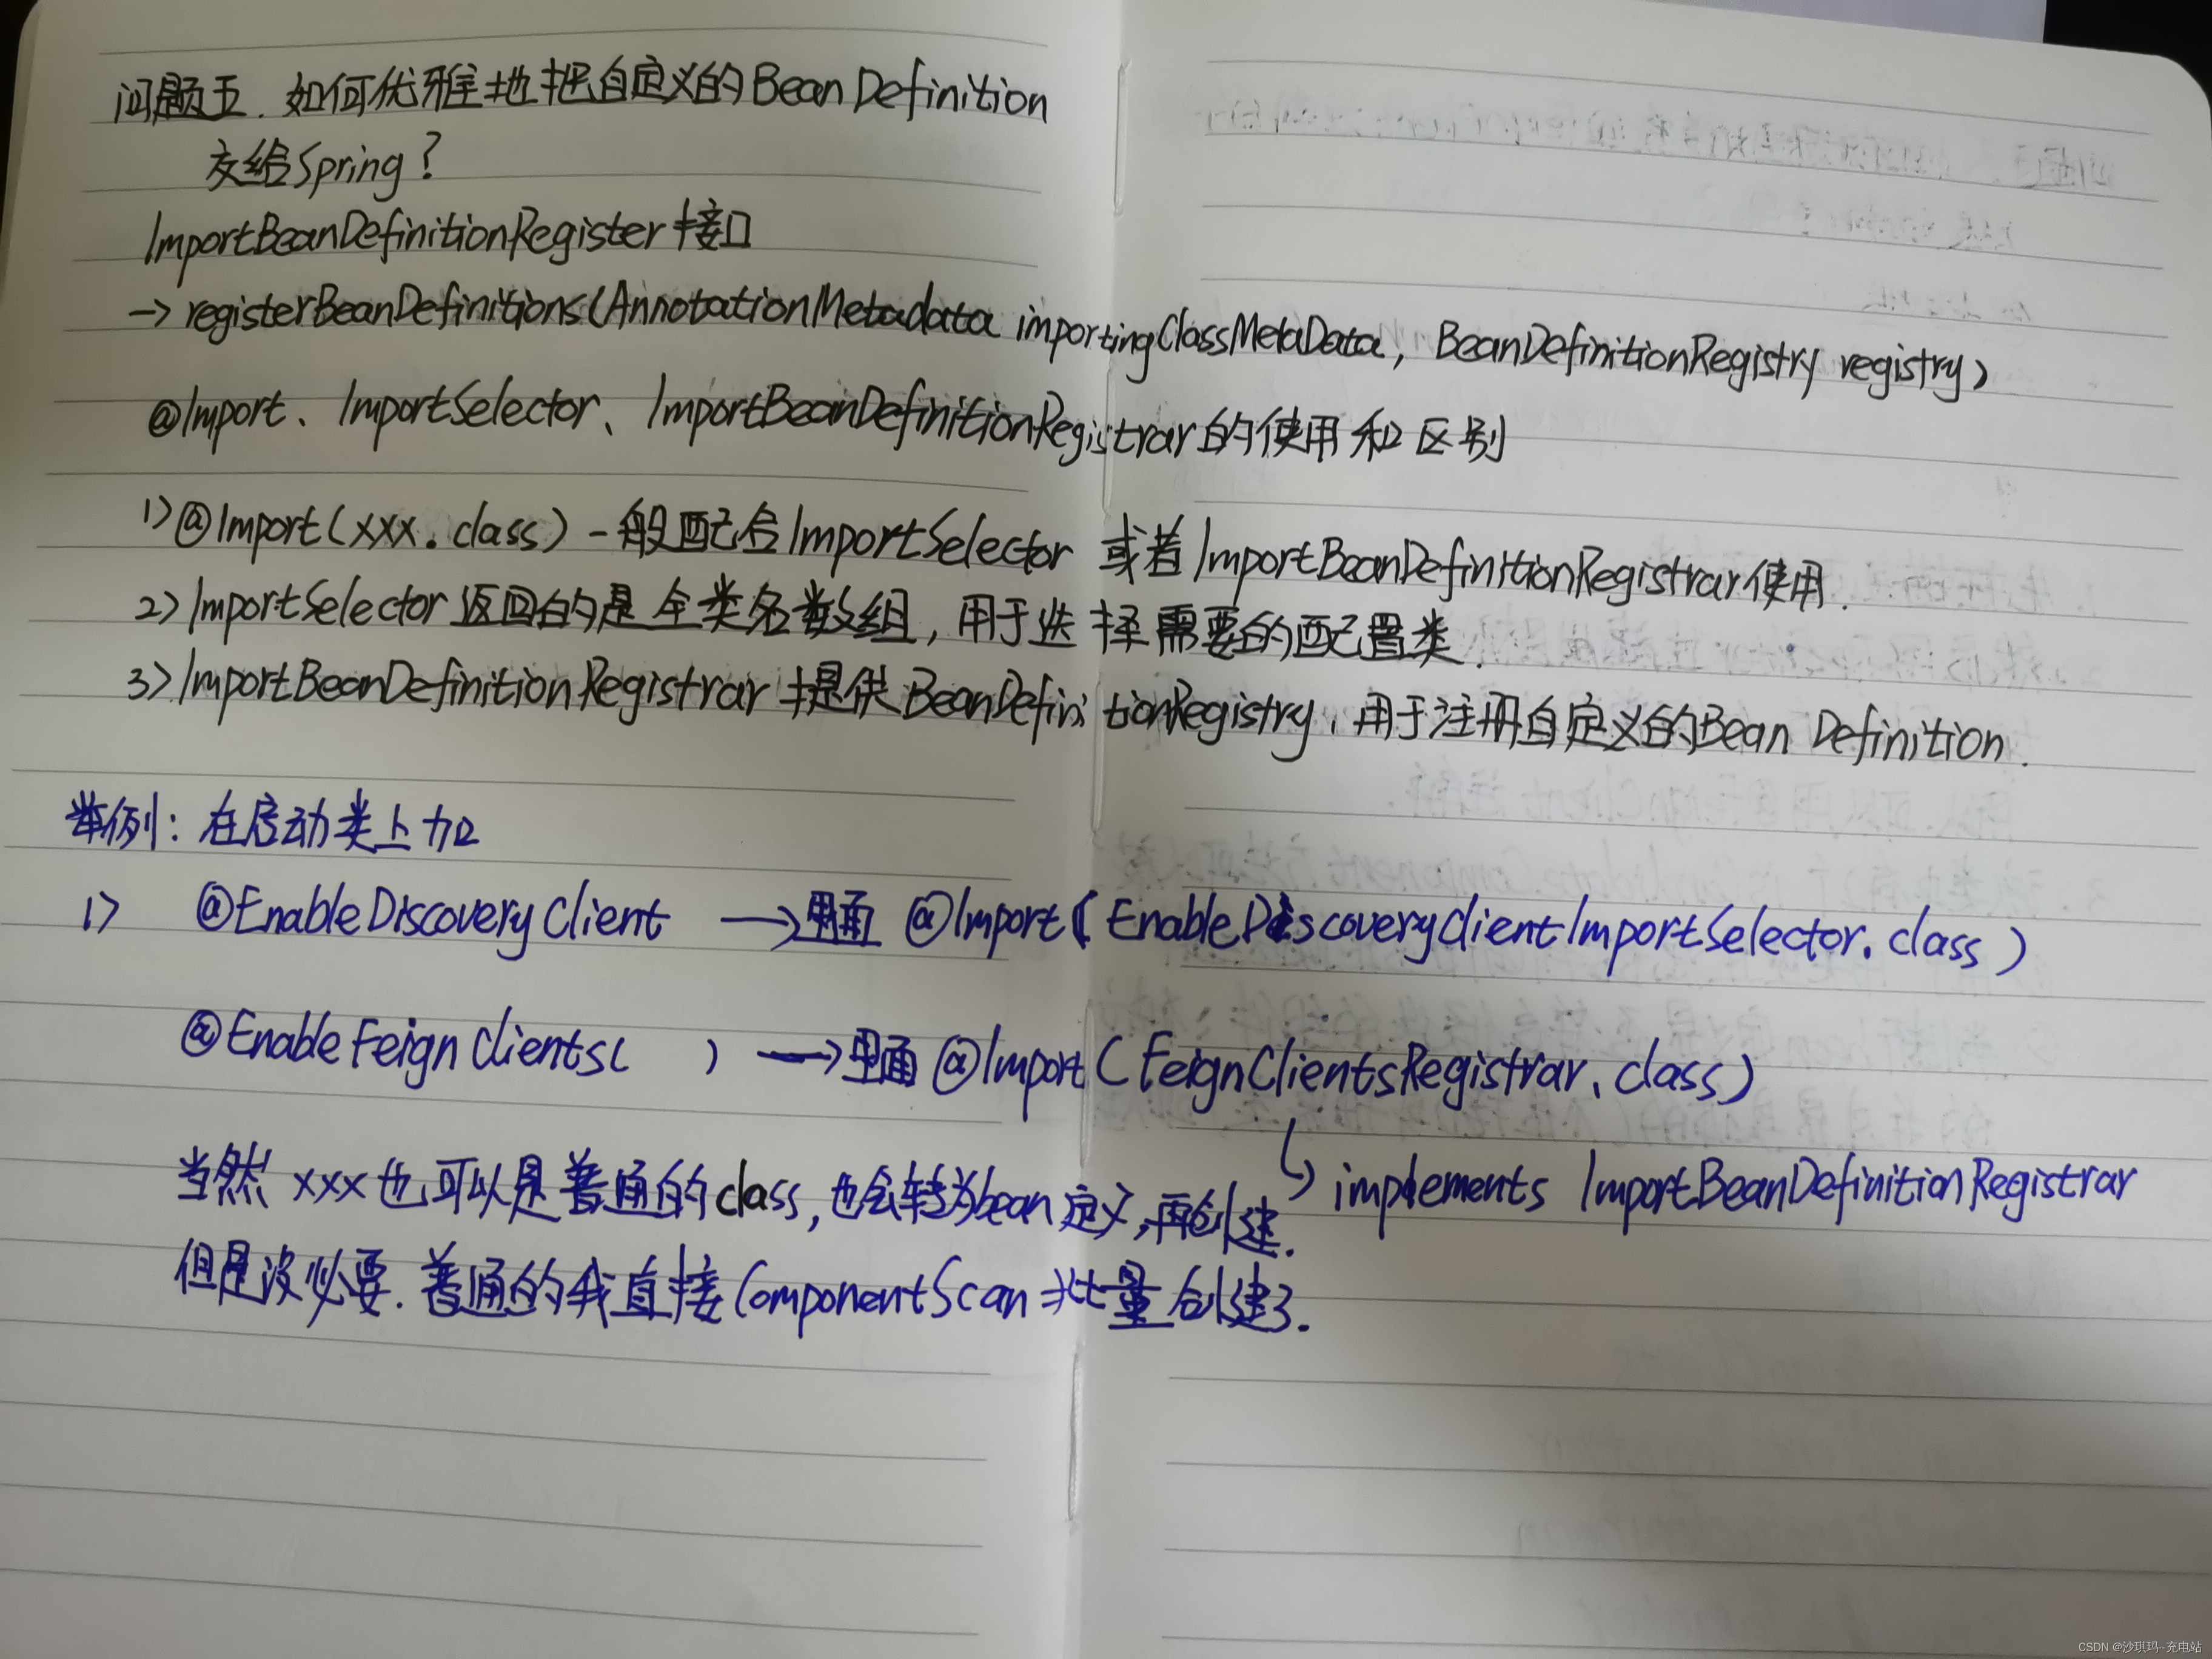 问题五. 如何优雅地把自定义的Bean Definition
交给Spring?
ImportBeanDefinitionRegister接口
→ registerBeanDefinitions(AnnotationMetadata importingClassMetaData, BeanDefinitionRegistry registry)
@Import、ImportSelector、ImportBeanDefinitionRegistrar的使用和区别
1>@Import(xxx.class)一般配合ImportSelector 或者ImportBeanDefinitionRegistrar使用.
2>ImportSelector返回的是全类名数组,用于选择需要的配置类.
3>ImportBeanDefinitionRegistrar提供BeanDefinitionRegistry,用于注册自定义的Bean Definition.
举例: 在启动类上加
1> @EnableDiscoveryClient →里面 @Import(EnableDiscoveryClientImportSelector.class)
@EnableFeignClients( ) →里面 @Import(FeignClientsRegistrar.class)
↳ implements ImportBeanDefinitionRegistrar
当然 xxx也可以是普通的class,也会转为bean定义,再创建.
但是没必要.普通的我直接ComponentScan批量创建了.
CSDN @沙琪玛--充电站